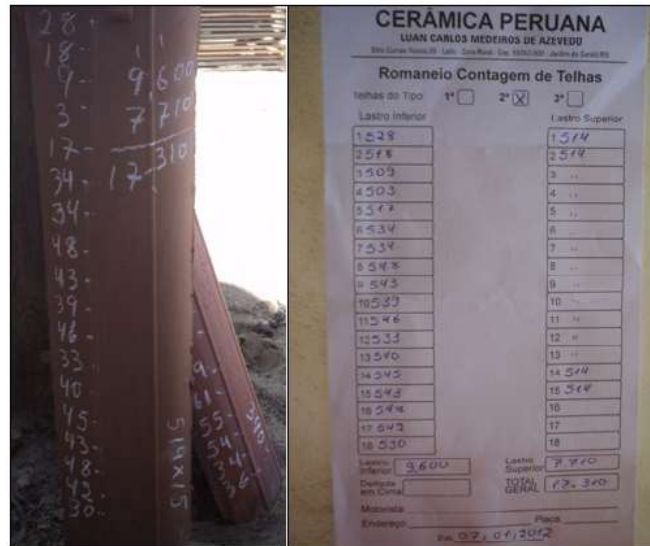 28-
18-
9-
3-
17-
34-
34-
48-
43-
39-
46-
33-
40-
45-
43-
48-
42-
30-
9,600
7,710
17,310
514x15
9-
61-
55-
54-
34-
36-
340
CERÂMICA PERUANA
LUAN CARLOS MEDEIROS DE AZEVEDO
Romaneio Contagem de Telhas
Telhas do Tipo 1ª 2ª X 3ª
Lastro Inferior
1 528
2 518
3 509
4 503
5 517
6 534
7 534
8 548
9 543
10 539
11 546
12 533
13 540
14 545
15 543
16 548
17 542
18 530
Lastro Inferior 9,600
Lastro Superior
1 514
2 514
3 "
4 "
5 "
6
7 "
8 "
9 "
10 "
11 "
12 "
13 "
14 514
15 514
16
17
18
Lastro Superior 7.710
em Cima
TOTAL GERAL 17.310
Motorista
Endereço Placa
Em 07, 01, 2012